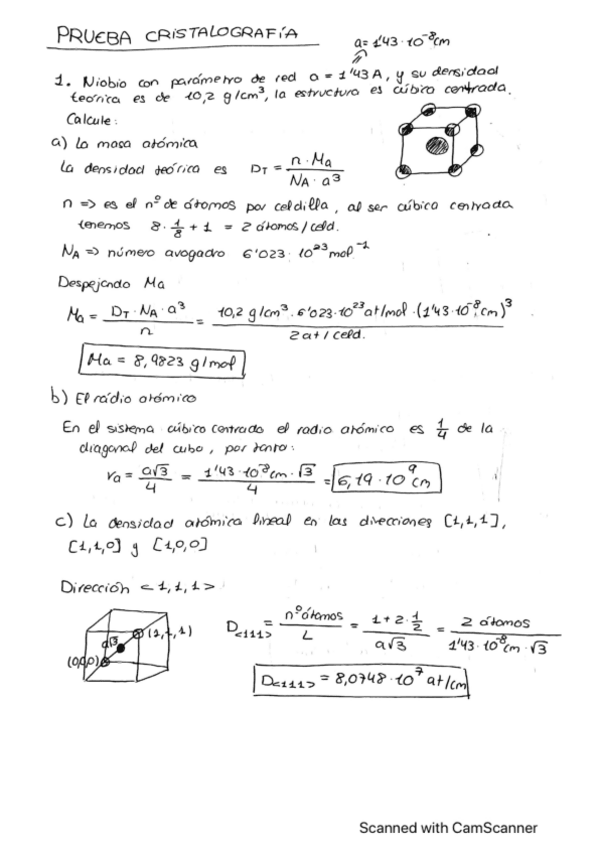 PRUEBA CRISTALOGRAFÍA
a = 1'43·10⁻⁸cm
1. Niobio con parámetro de red a = 1'43 A, y su densidad
teórica es de 10,2 g/cm³, la estructura es cúbico centrada.
Calcule:
a) La masa atómica
La densidad teórica es D_T = n·Ma / N_A·a³
n => es el nº de átomos por celdilla, al ser cúbica centrada
tenemos 8·1/8 + 1 = 2 átomos/celd.
N_A => número avogadro 6'023·10²³ mol⁻¹
Despejando Ma
Ma = D_T·N_A·a³ / n = 10,2 g/cm³·6'023·10²³ at/mol·(1'43·10⁻⁸cm)³ / 2 at/celd.
Ma = 8,9823 g/mol
b) El rádio atómico
En el sistema cúbico centrado el radio atómico es 1/4 de la
diagonal del cubo, por tanto:
ra = a√3 / 4 = 1'43·10⁻⁸cm·√3 / 4 = 6,19·10⁹ cm
c) La densidad atómica lineal en las direcciones [1,1,1],
[1,1,0] y [1,0,0]
Dirección <1,1,1>
(1,1,1)
a√3
(0,0,0)
D<111> = nº átomos / L = 1+2·1/2 / a√3 = 2 átomos / 1'43·10⁻⁸cm·√3
D<111> = 8,0748·10⁷ at/cm
Scanned with CamScanner